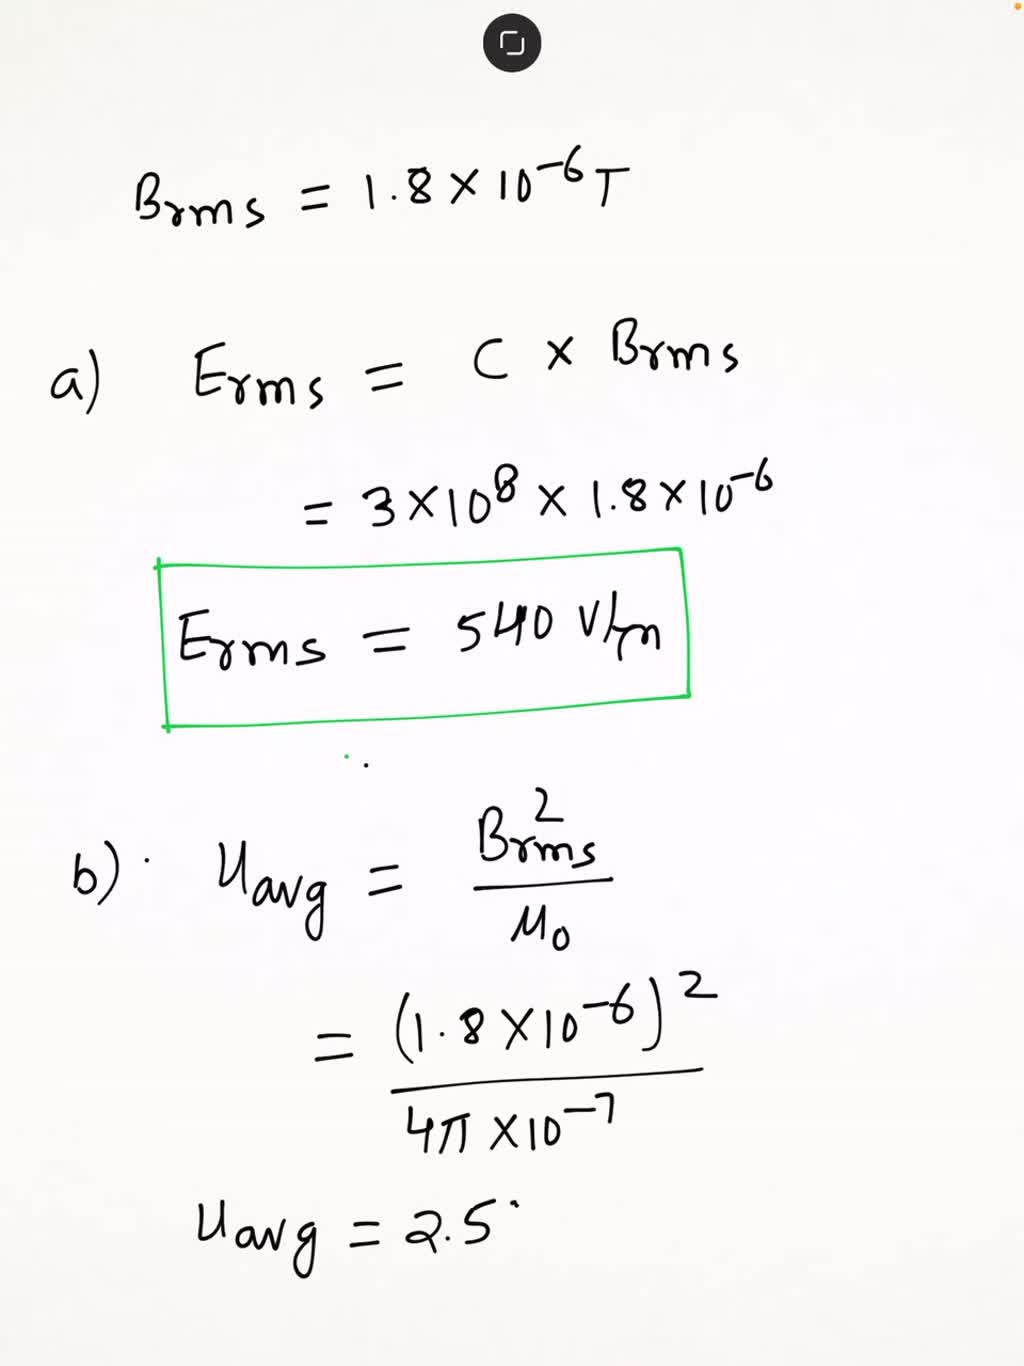 Brms = 1.8 × 10⁻⁶ T
a) Erms = C × Brms
= 3 × 10⁸ × 1.8 × 10⁻⁶
Erms = 540 V/m
b) Uavg = Brms² / μ₀
= (1.8 × 10⁻⁶)² / 4π × 10⁻⁷
Uavg = 2.5